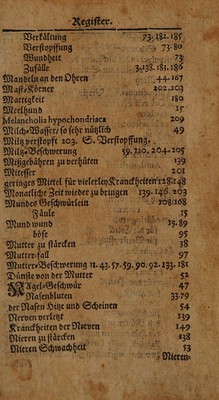 Register.
Verkältung 73.181.185
Verstopffung 73.80
Wundheit 73
Zufälle 3.138.181.186
Mandeln an den Ohren 44.167
Mast-Körner 102.103
Mattigkeit 180
Meelhund 15
Melancholia hypochondriaca 209
Milch-Wasser/ so sehr nützlich 49
Miltz verstopft 103. S. Verstopffung.
Miltz-Beschwerung 59.110.204.205
Mißgebähren zu verhüten 139
Mitesser 201
geringes Mittel für vielerley Kranckheiten 128.148
Monatliche Zeit wieder zu bringen 139.146.203
Mundes Geschwürlein 108.168
Fäule 15
Mund wund 15.89
böse 95
Mutter zu stärcken 18
Mutter-fall 97
Mutter-Beschwerung 11.43.57.59.90.92.133.181
Dünste von der Mutter 52
Nägel-Geschwär 47
Nasenbluten 33.79
der Nasen Hitz und Scheinen 54
Nerven verletzt 139
Kranckheiten der Nerven 149
Nieren zu stärcken 138
Nieren Schwachheit 53
Nieren-